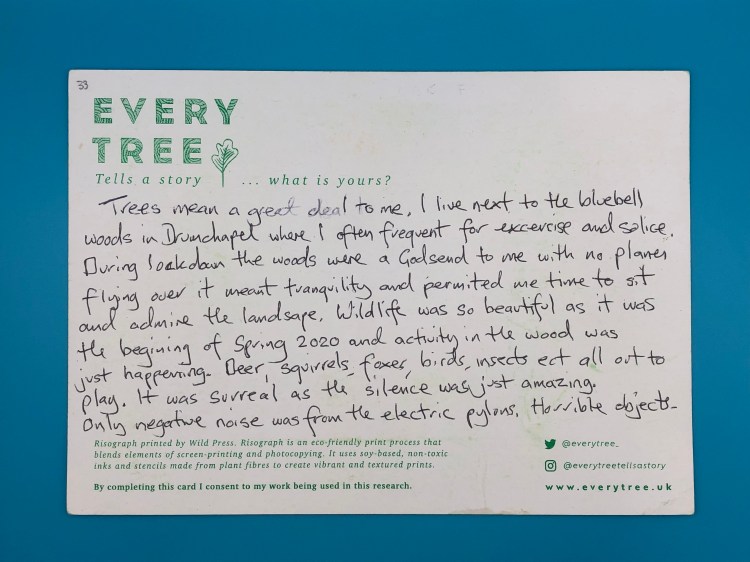 33
EVERY
TREE
Tells a story ... what is yours?
Trees mean a great deal to me, I live next to the bluebell
woods in Drumchapel where I often frequent for excercise and solice.
During lockdown the woods were a Godsend to me with no planes
flying over it meant tranquility and permited me time to sit
and admire the landsape. Wildlife was so beautiful as it was
the begining of Spring 2020 and activity in the wood was
just happening. Deer, squirrels, foxes, birds, insects ect all out to
play. It was surreal as the silence was just amazing.
Only negative noise was from the electric pylons. Horrible objects.
Risograph printed by Wild Press. Risograph is an eco-friendly print process that
blends elements of screen-printing and photocopying. It uses soy-based, non-toxic
inks and stencils made from plant fibres to create vibrant and textured prints.
By completing this card I consent to my work being used in this research.
@everytree_
@everytreetellsastory
www.everytree.uk